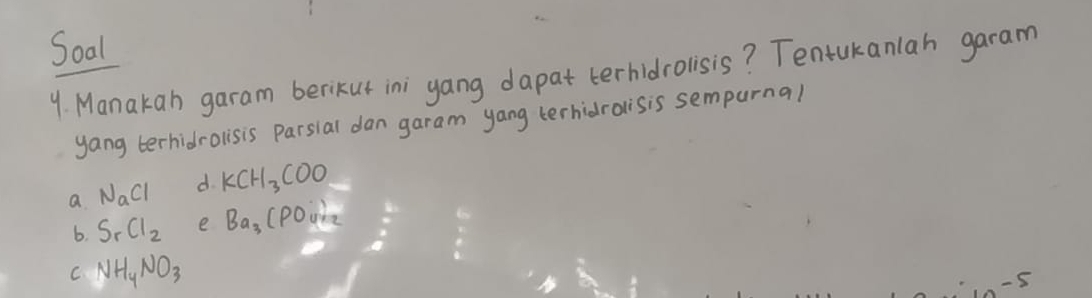 Soal
4. Manakah garam berikut ini yang dapat terhidrolisis? Tentukanlah garam
yang terhidrolisis parsial dan garam yang terhidrolisis sempurna!
a. NaCl d. KCH₃COO
b. SrCl₂ e. Ba₃(PO₄)₂
c. NH₄NO₃
10⁻⁵